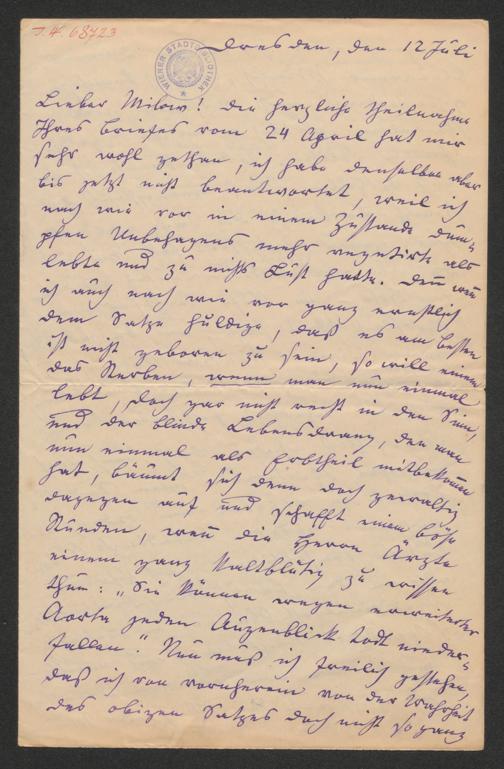 J. N. 68723
WIENER STADTBIBLIOTHEK
Dresden, den 12 Juli
Lieber Milow! Die herzliche Theilnahme
Ihres Briefes vom 24 April hat mir
sehr wohl gethan, ich habe denselben aber
bis jetzt nicht beantwortet, weil ich
nach wie vor in einem Zustande dum-
pfen Unbehagens mehr vegetirte als
lebte und zu nichts Lust hatte. Denn wenn
ich auch nach wie vor ganz ernstlich
dem Satze huldige, daß es am besten
ist nicht geboren zu sein, so will einem
das Sterben, wenn man nun einmal
lebt, doch gar nicht recht in den Sinn,
und der blinde Lebensdrang, den man
nun einmal als Erbtheil mitbekommen
hat, bäumt sich denn doch gewaltig
dagegen auf und schafft einem böse
Stunden, wenn die Herrn Ärzte
einem ganz kaltblütig zu wissen
thun: „Sie können wegen erweiterter
Aorta jeden Augenblick todt nieder-
fallen“. Nun muß ich freilich gestehen,
daß ich von vornherein von der Wahrheit
des obigen Satzes doch nicht so ganz